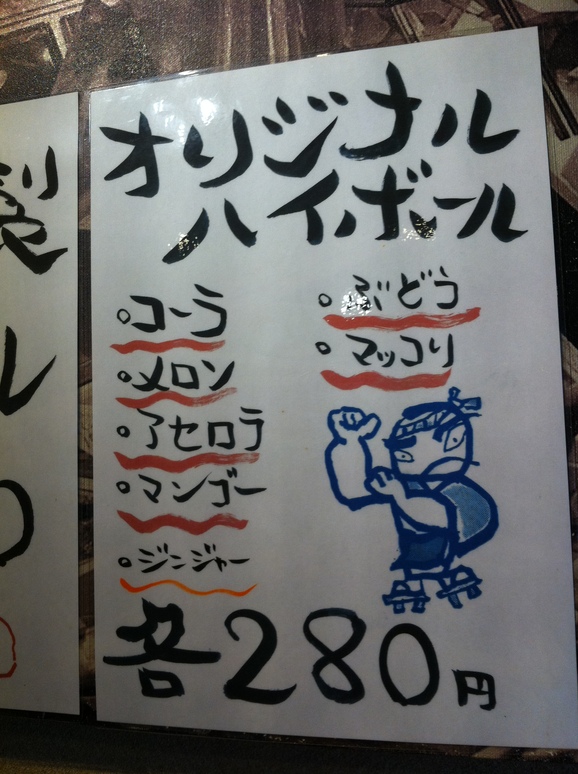 製
ル
0
オリジナル
ハイボール
コーラ
メロン
アセロラ
マンゴー
ジンジャー
ぶどう
マッコリ
各280円